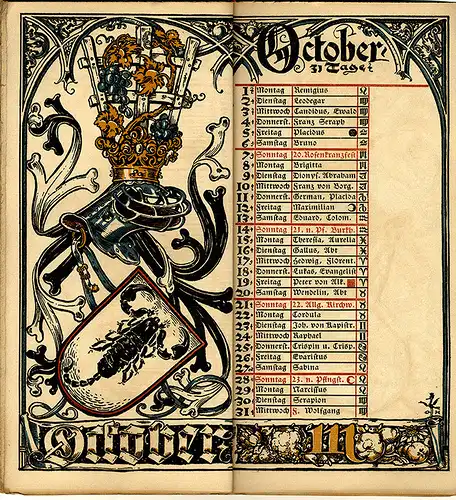 October
31 Tage
1 Montag Remigius
2 Dienstag Leodegar
3 Mittwoch Candidus, Ewald
4 Donnerst. Franz Seraph
5 Freitag Placidus
6 Samstag Bruno
7 Sonntag 20. Rosenkranzfest
8 Montag Brigitta
9 Dienstag Dionys. Abraham
10 Mittwoch Franz von Borg.
11 Donnerst. German, Placida
12 Freitag Maximilian
13 Samstag Eduard, Colom.
14 Sonntag 21. n. Pf. Burkh.
15 Montag Theresia, Aurelia
16 Dienstag Gallus, Abt
17 Mittwoch Hedwig, Florent.
18 Donnerst. Lukas, Evangelist
19 Freitag Peter von Alk.
20 Samstag Wendelin, Abt
21 Sonntag 22. Allg. Kirchw.
22 Montag Cordula
23 Dienstag Joh. von Kapistr.
24 Mittwoch Raphael
25 Donnerst. Crispin u. Crisp.
26 Freitag Evaristus
27 Samstag Sabina
28 Sonntag 23. n. Pfingst.
29 Montag Narcissus
30 Dienstag Serapion
31 Mittwoch F. Wolfgang
October